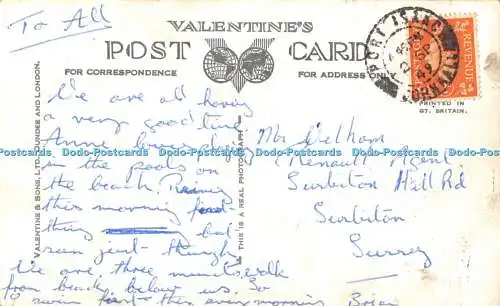 To All
VALENTINE'S
POST CARD
FOR CORRESPONDENCE
FOR ADDRESS ONLY
PORT ISAAC
CORNWALL
REVENUE
PRINTED IN
GT. BRITAIN.
VALENTINE & SONS, LTD., DUNDEE AND LONDON.
THIS IS A REAL PHOTOGRAPH
We are all having
a very good time
Anne
in the pools on
the beach.
this morning
seen just though
We are three minutes walk
from beach, below us. So
swim this morning. Brian
Mr Welham
Renault Agent.
Surbiton Hill Rd
Surbiton
Surrey
Dodo-Postcards Dodo-Postcards Dodo-Postcards Dodo-Postcards Dodo-Postcards Dodo-Postcards